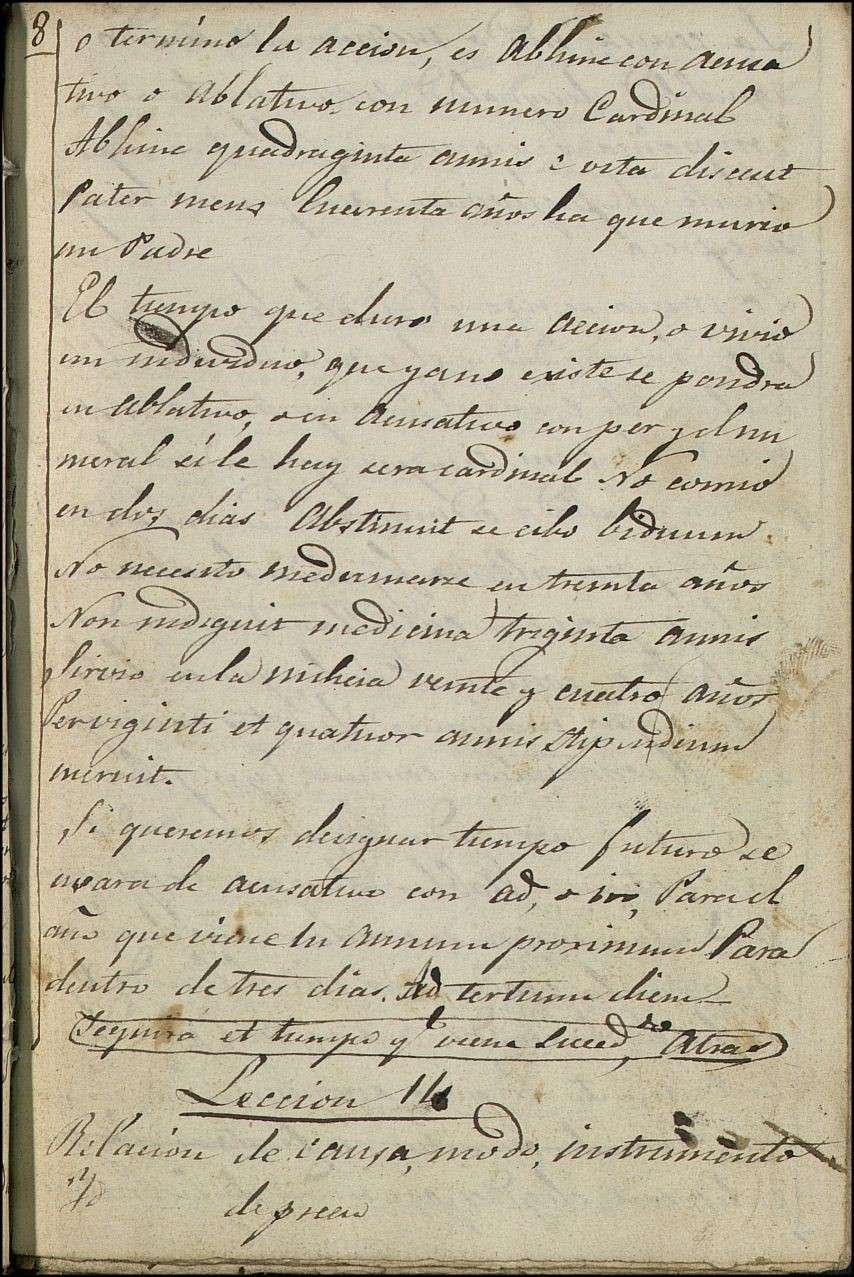 8
o termino la accion, es Abhinc con acusa
tivo o Ablativo. con numero Cardinal
Abhinc quadraginta annis e vita discecit
Pater meus Cuarenta años ha que murio
mi Padre
El tiempo que duro una accion, o vivio
un individuo, que ya no existe se pondra
en Ablativo, o en Acusativo con per y el nu
meral si le hay sera cardinal No comio
en dos dias Abstinuit se cibo biduum
No necesito medicinarse en treinta años
Non indiguit medicina triginta annis
Sirvio en la milicia veinte y cuatro años
Per viginti et quatuor annis stipendium
meruit.
Si queremos designar tiempo futuro se
usara de acusativo con ad, o in, Para el
año que viene In annum proximum Para
dentro de tres dias. Ad tertium diem
Seguira el tiempo q.e viene suced,do Atras
Leccion 11
Relacion de causa, modo, instrumento
y
de precio